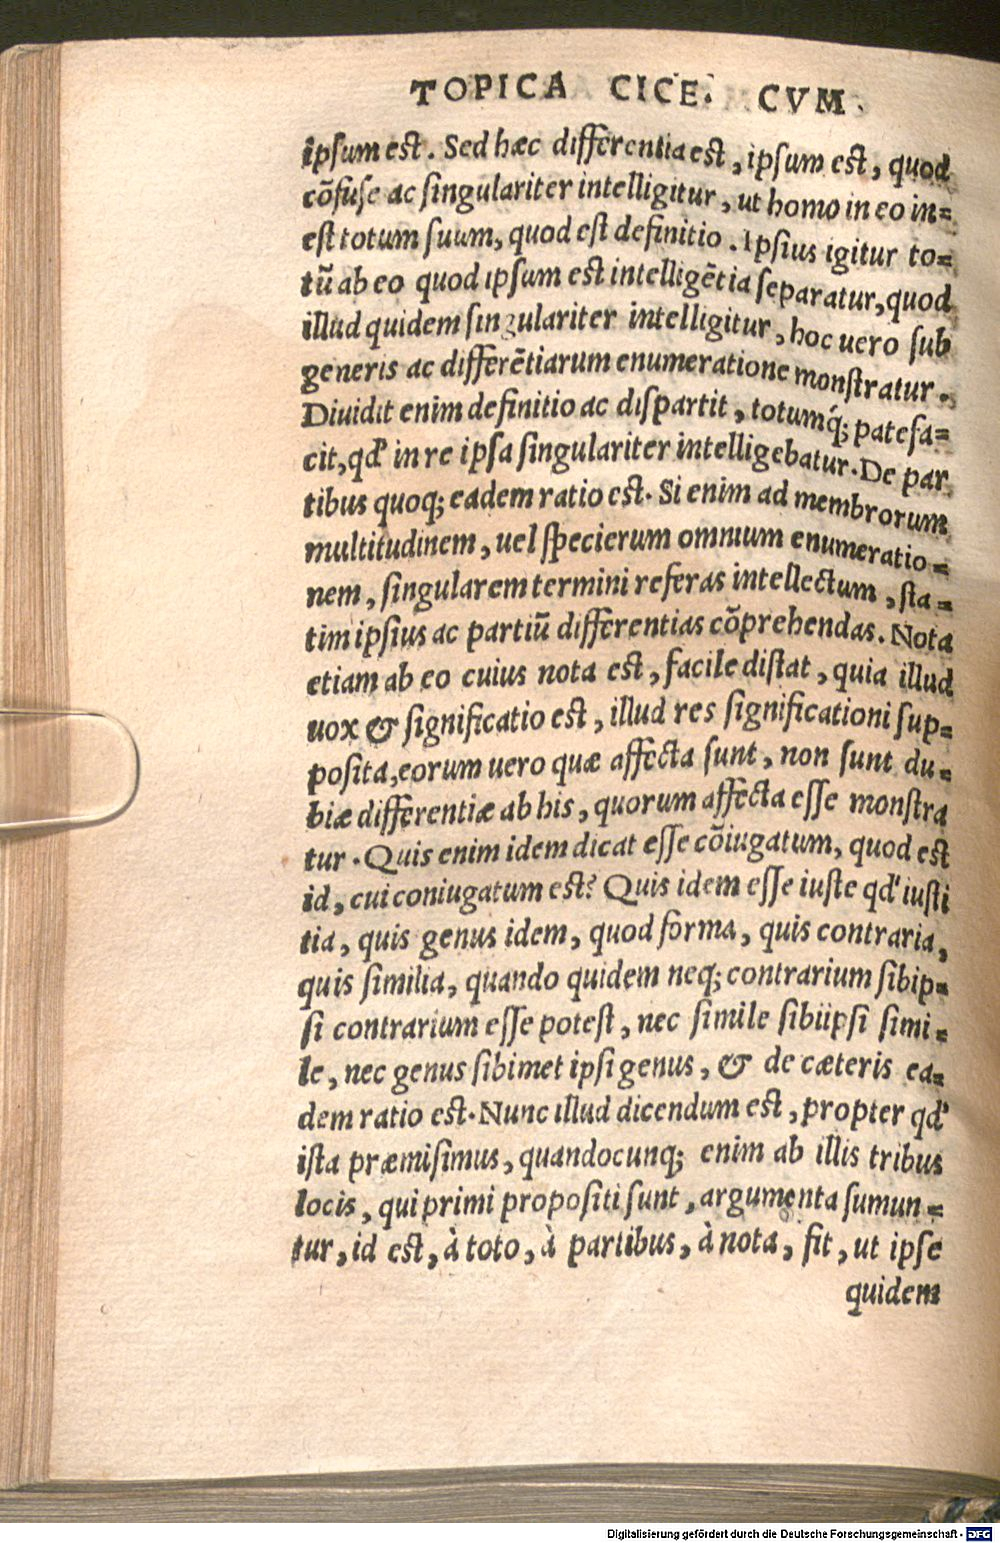 TOPICA CICE. CVM
ipsum est. Sed hæc differentia est, ipsum est, quod
cõfuse ac singulariter intelligitur, ut homo in eo in=
est totum suum, quod est definitio. Ipsius igitur to=
tũ ab eo quod ipsum est intelligẽtia separatur, quod
illud quidem singulariter intelligitur, hoc uero sub
generis ac differẽtiarum enumeratione monstratur.
Diuidit enim definitio ac dispartit, totumq́; patefa=
cit, qd' in re ipsa singulariter intelligebatur. De par
tibus quoq; eadem ratio est. Si enim ad membrorum
multitudinem, uel specierum omnium enumeratio=
nem, singularem termini referas intellectum, sta=
tim ipsius ac partiũ differentias cõprehendas. Nota
etiam ab eo cuius nota est, facile distat, quia illud
uox & significatio est, illud res significationi sup=
posita, eorum uero quæ affecta sunt, non sunt du=
biæ differentiæ ab his, quorum affecta esse monstra
tur. Quis enim idem dicat esse cõiugatum, quod est
id, cui coniugatum est? Quis idem esse iuste qd' iusti
tia, quis genus idem, quod forma, quis contraria,
quis similia, quando quidem neq; contrarium sibip=
si contrarium esse potest, nec simile sibiipsi simi=
le, nec genus sibimet ipsi genus, & de cæteris ea=
dem ratio est. Nunc illud dicendum est, propter qd'
ista præmisimus, quandocunq; enim ab illis tribus
locis, qui primi propositi sunt, argumenta sumun=
tur, id est, à toto, à partibus, à nota, fit, ut ipse
quidem
Digitalisierung gefördert durch die Deutsche Forschungsgemeinschaft - DFG